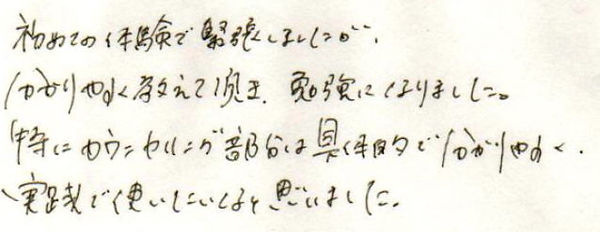 初めての体験で緊張しましたが、
分かりやすく教えて頂き、勉強になりました。
特にカウンセリング部分は具体的で分かりやすく、
実践で使いたいなと思いました。